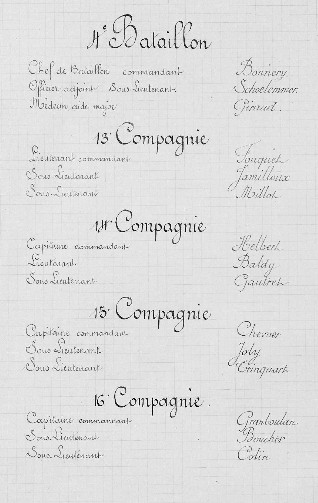 4e Bataillon
Chef de Bataillon commandant Bonnery
Officier adjoint Sous Lieutenant Schoelemmer
Médecin aide major Giraud.
13e Compagnie
Lieutenant commandant Fouquet
Sous Lieutenant Jamilloux
Sous-Lieutenant Maillot
14e Compagnie
Capitaine commandant Helbert
Lieutenant Baldy
Sous Lieutenant
15e Compagnie
Capitaine commandant
Sous Lieutenant Joly
Sous Lieutenant Cinquart
16e Compagnie.
Capitaine commandant
Sous-Lieutenant Boucher
Sous-Lieutenant Colin